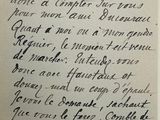 à compter sur vous
pour mon ami Ducoureau.
Quant à moi ou à mon gendre
Régnier, le moment est venu
de marcher. Entendez-vous
donc avec Hanotaux et
donnez-moi un coup d'épaule,
Je vous le demande, sachant
que vous le ferez. Comble de